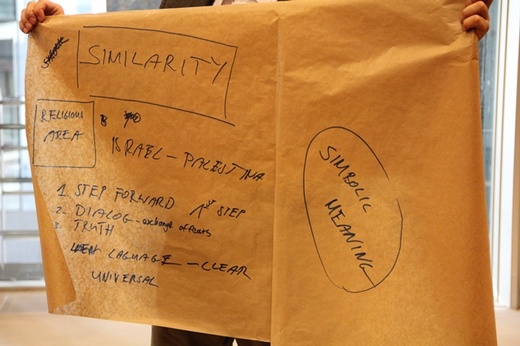 SIMILARITY
RELIGIOUS
AREA
ISRAEL - PALESTINA
1. STEP FORWARD ↑ 1ST STEP
2. DIALOG - exchange of fears
3. TRUTH
LAGUAGE - CLEAR
UNIVERSAL
SIMBOLIC
MEANING